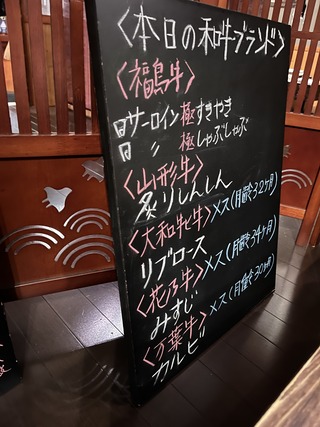 〈本日の和牛ブランド〉
〈福島牛〉
サーロイン極すきやき
〃 極しゃぶしゃぶ
〈山形牛〉
炙りしんしん
〈大和牝牛〉メス(月齢32ヶ月)
リブロース
〈花乃牛〉メス(月齢34ヶ月)
みすじ
〈万葉牛〉メス(月齢30ヶ月)
カルビ